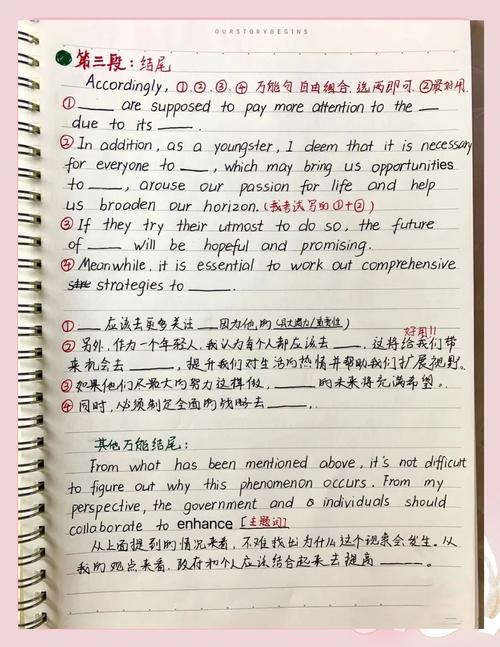 OURSTORYBEGINS
第三段：结尾
Accordingly, ①.②.③.④ 万能句 自由组合. 选两即可. ②最好用.
① ____ are supposed to pay more attention to the __
due to its ____ .
② In addition, as a youngster, I deem that it is necessary
for everyone to ____ , which may bring us opportunities
to ____ , arouse our passion for life and help
us broaden our horizon. (我考试写的①+②)
③ If they try their utmost to do so, the future
of ____ will be hopeful and promising.
④ Meanwhile, it is essential to work out comprehensive
strategies to ____ .
① ____ 应该去更多关注 ____ 因为他的 (巨大潜力/重要性)
好用!!
② 另外, 作为一个年轻人, 我认为每个人都应该去 ____ , 这将给我们带
来机会去 ____ , 提升我们对生活的热情并帮助我们扩展视野.
③ 如果他们尽最大的努力这样做, ____ 的未来将充满希望.
④ 同时, 必须制定全面的战略去 ____ .
其他万能结尾:
From what has been mentioned above, it's not difficult
to figure out why this phenomenon occurs. From my
perspective, the government and individuals should
collaborate to enhance [主题词]
从上面提到的情况来看, 不难找出为什么这个现象会发生. 从
我的观点来看, 政府和个人应该结合起来去提高 ____ .